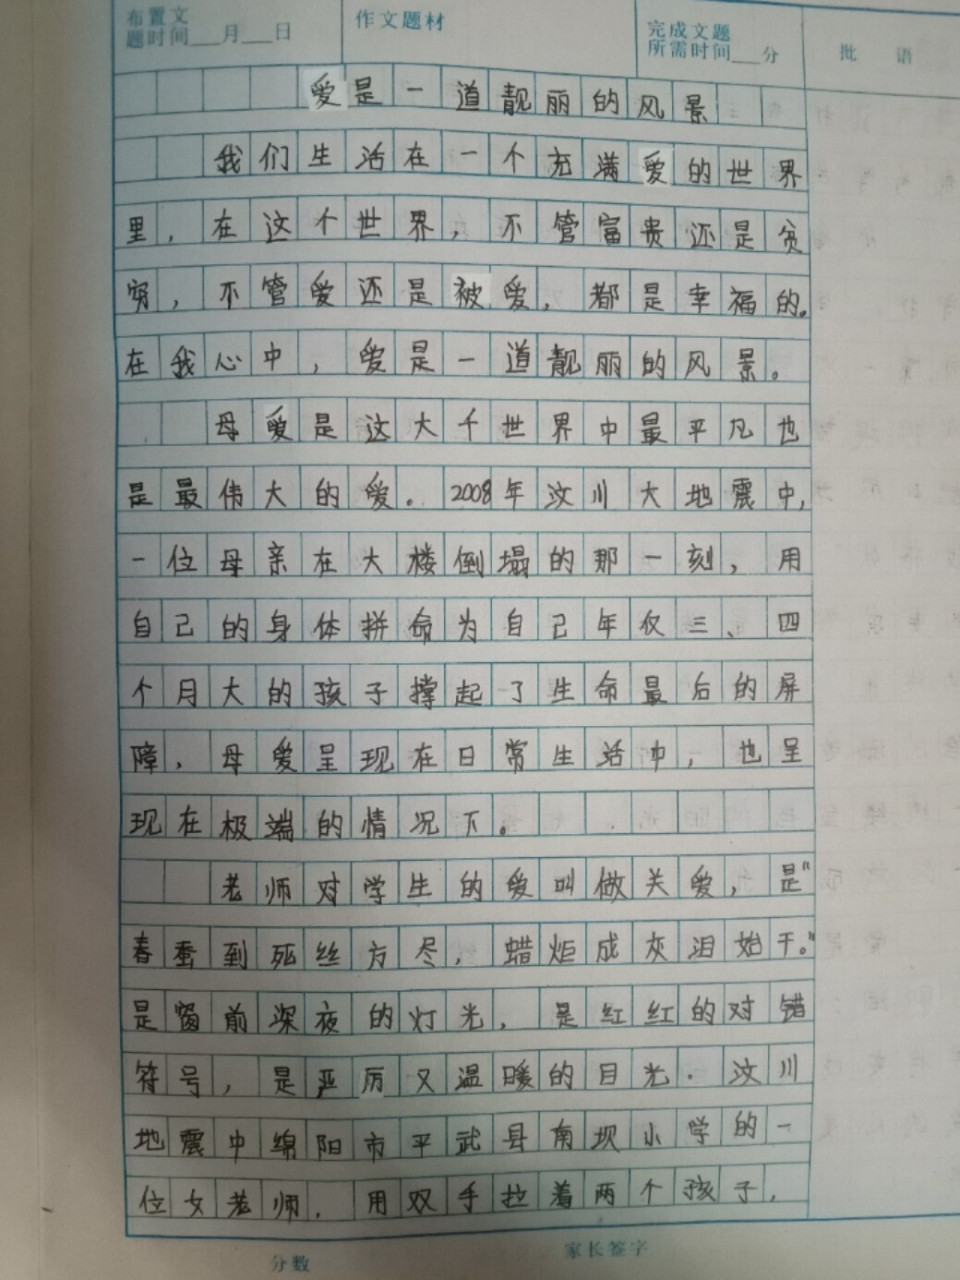 布置文
题时间___月___日
作文题材
完成文题
所需时间___分
批 语
爱是一道靓丽的风景
我们生活在一个充满爱的世界
里,在这个世界,不管富贵还是贫
穷,不管爱还是被爱,都是幸福的。
在我心中,爱是一道靓丽的风景。
母爱是这大千世界中最平凡也
是最伟大的爱。2008年汶川大地震中,
一位母亲在大楼倒塌的那一刻,用
自己的身体拼命为自己年仅三、四
个月大的孩子撑起了生命最后的屏
障,母爱呈现在日常生活中,也呈
现在极端的情况下。
老师对学生的爱叫做关爱,是“
春蚕到死丝方尽,蜡炬成灰泪始干。”
是窗前深夜的灯光,是红红的对错
符号,是严厉又温暖的目光.汶川
地震中绵阳市平武县南坝小学的一
位女老师,用双手拉着两个孩子,
分数
家长签字